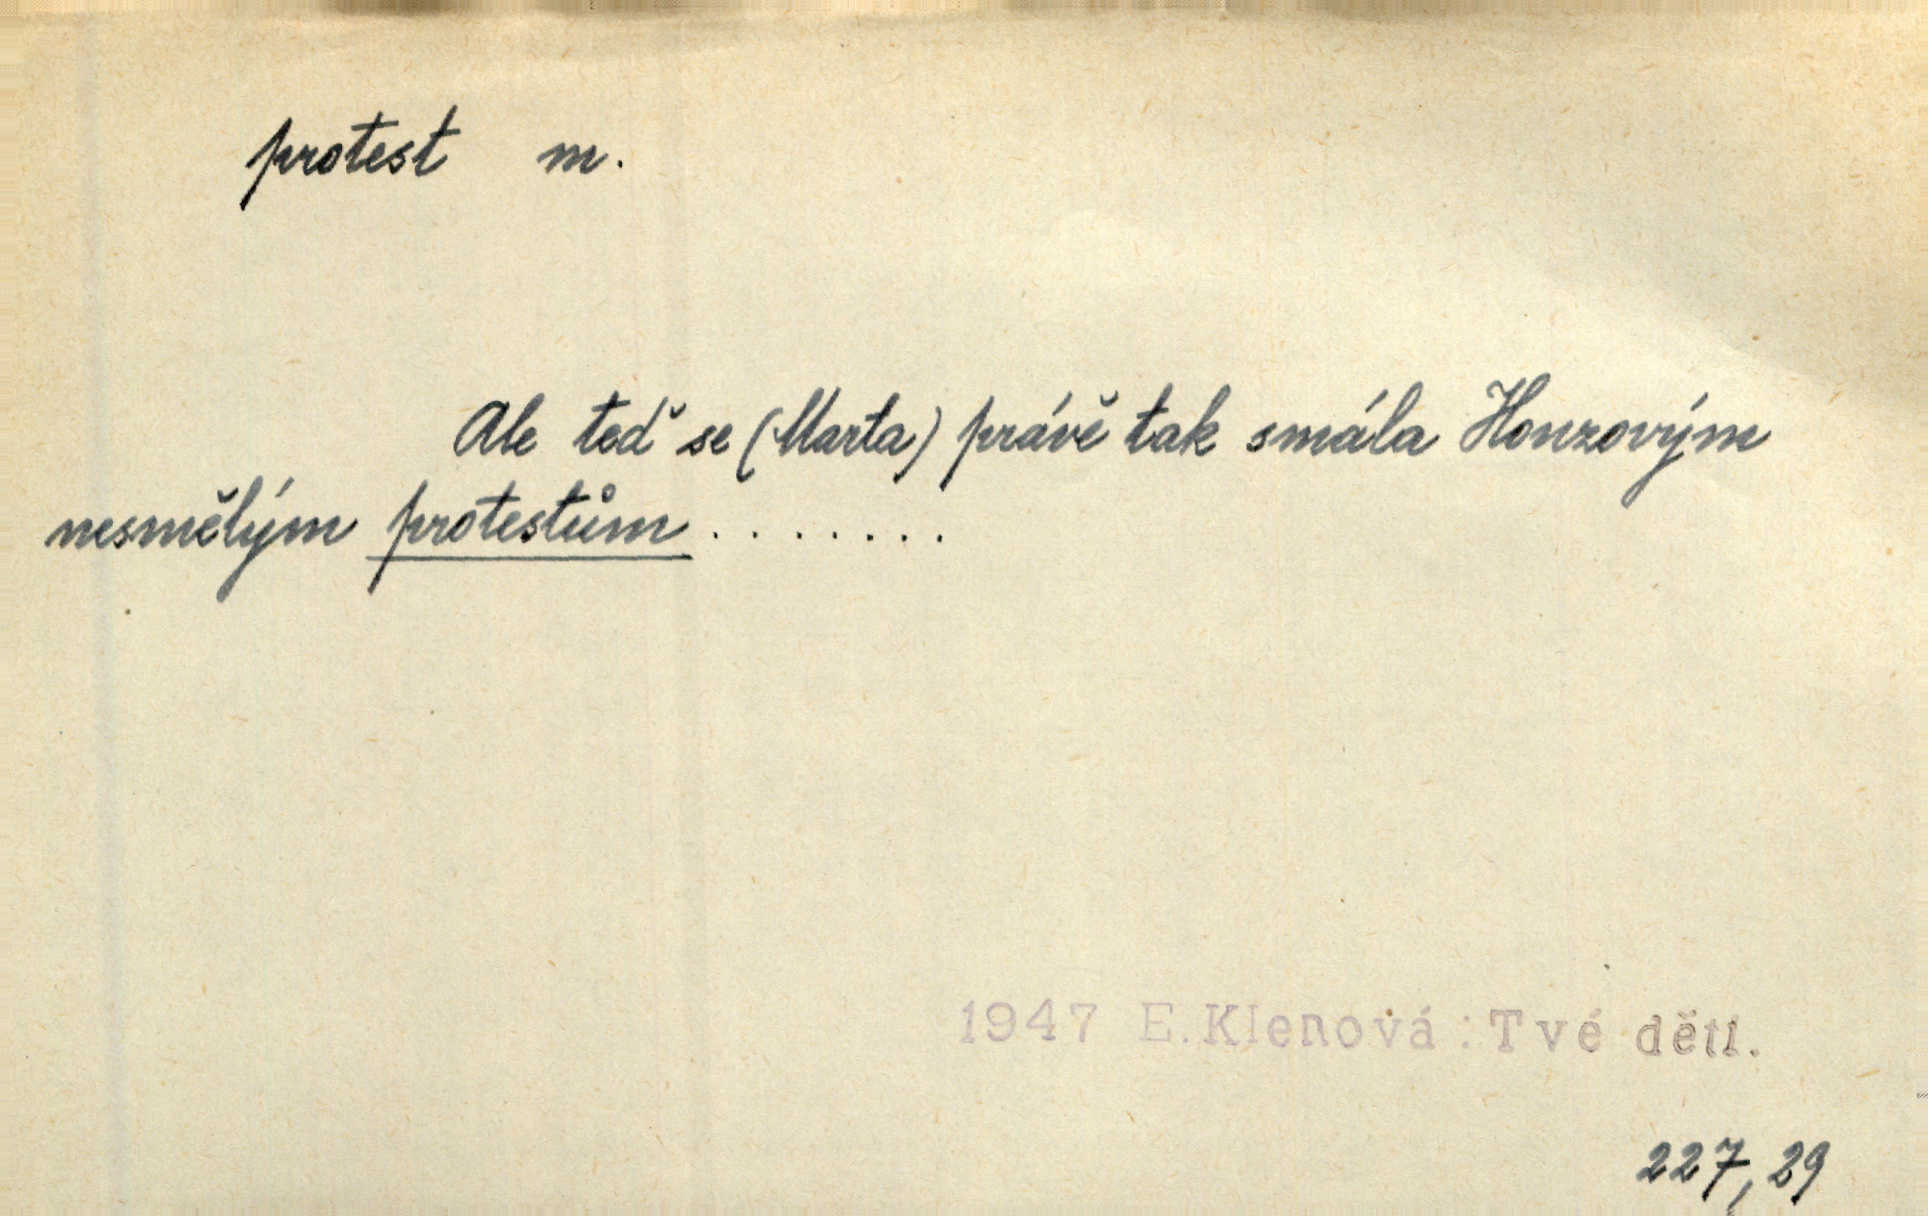 protest m.
Ale teď se (Marta) právě tak smála Honzovým
nesmělým protestům ........
1947 E.Klenová: Tvé děti.
227,29